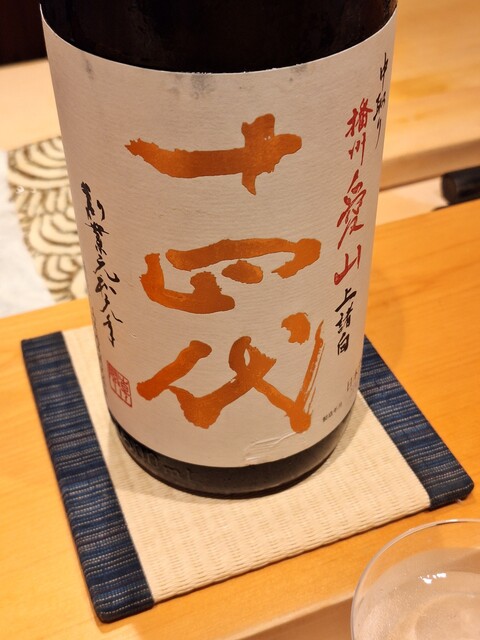 中取り
播州愛山
上諸白
十四代
創業元和元年
製造年月